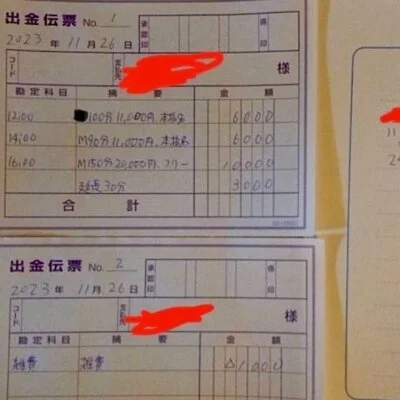 出金伝票 No. 1
承認印 係印
2023年 11月 26日
コード 支払先 様
勘定科目 摘要 金額
12:00 100分 11,000円、本指名 6000
14:00 M90分 11,000円、本指名 6000
16:00 M150分 20,000円、フリー 10000
延長30分 3000
合計
出金伝票 No. 2
承認印 係印
2023年 11月 26日
コード 支払先 様
勘定科目 摘要 金額
雑費 雑費 △1000
11